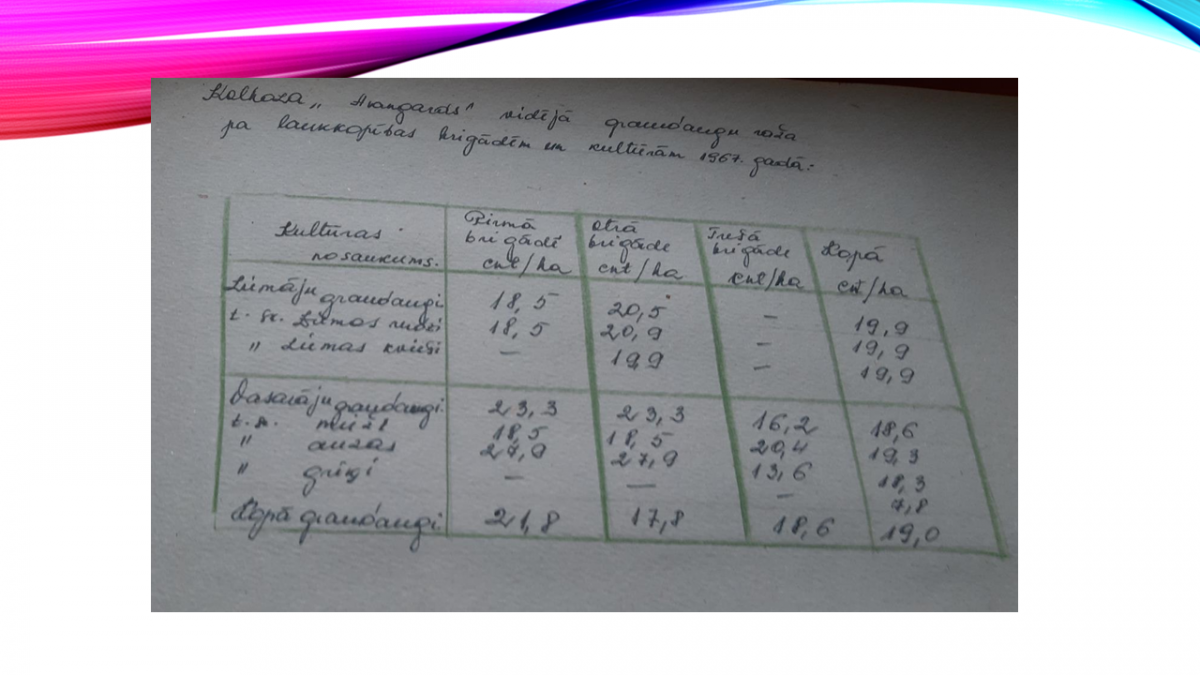 Kolhoza „Avangards" vidējā graudaugu raža
pa laukkopības brigādēm un kultūrām 1967. gadā:
Kultūras nosaukums. | Pirmā brigādē cnt/ha | Otrā brigāde cnt/ha | Trešā brigāde cnt/ha | Kopā cnt/ha
Ziemāju graudaugi | 18,5 | 20,5 | – | 19,9
t. sk. Ziemas rudzi | 18,5 | 20,9 | – | 19,9
" Ziemas kvieši | – | 19,9 | – | 19,9
Vasarāju graudaugi. | 23,3 | 23,3 | 16,2 | 18,6
t. sk. mieži | 18,5 | 18,5 | 20,4 | 19,3
" auzas | 27,9 | 27,9 | 13,6 | 18,3
" griķi | – | – | – | 7,8
Kopā graudaugi. | 21,8 | 17,8 | 18,6 | 19,0